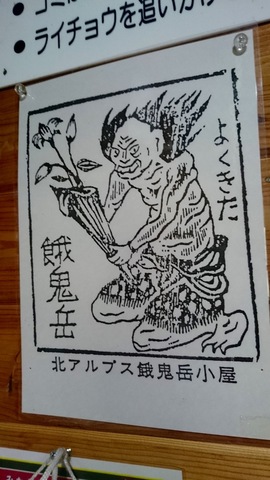 ● ライチョウを追いか
よくきた
餓鬼岳
北アルプス餓鬼岳小屋